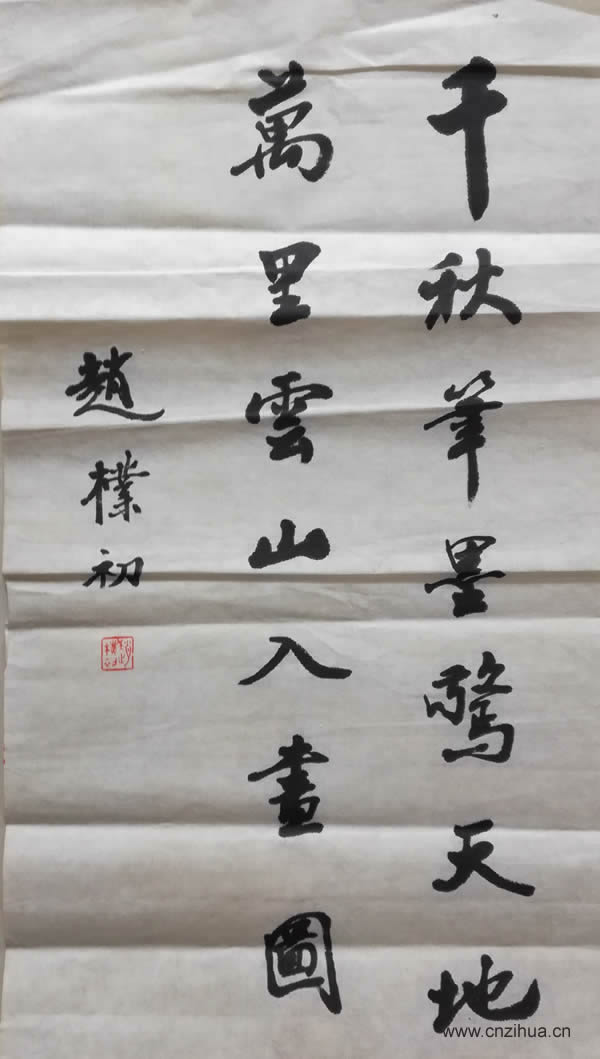 千秋筆墨驚天地
萬里雲山入畫圖
趙樸初
www.cnzihua.cn